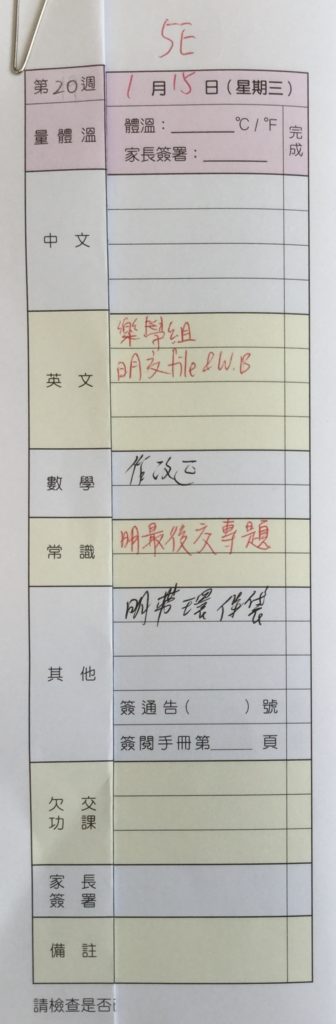 5E
第20週 1月15日(星期三)
量體溫 體溫：______℃/℉ 完成
家長簽署：______
中文
英文 樂學組
明交file & W.B
數學 作改正
常識 明最後交專題
其他 明帶環保袋
簽通告( )號
簽閱手冊第____頁
欠交功課
家長簽署
備註
請檢查是否